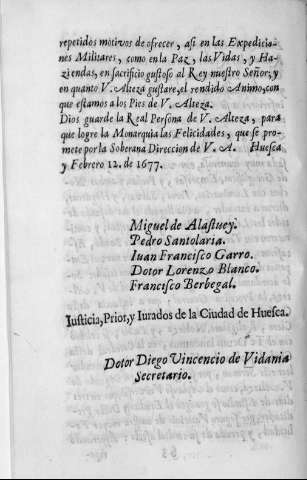 repetidos motivos de ofrecer, asi en las Expedicio-
nes Militares, como en la Paz, las Vidas, y Ha-
ziendas, en sacrificio gustoso al Rey nuestro Señor; y
en quanto V. Alteza gustare, el rendido Animo, con
que estamos a los Pies de V. Alteza.
Dios guarde la Real Persona de V. Alteza, para
que logre la Monarquia las Felicidades, que se pro-
mete por la Soberana Direccion de V. A. Huesca
y Febrero 12. de 1677.
Miguel de Alastuey.
Pedro Santolaria.
Iuan Francisco Garro.
Dotor Lorenzo Blanco.
Francisco Berbegal.
Iusticia, Prior, y Iurados de la Ciudad de Huesca.
Dotor Diego Vincencio de Vidania
Secretario.